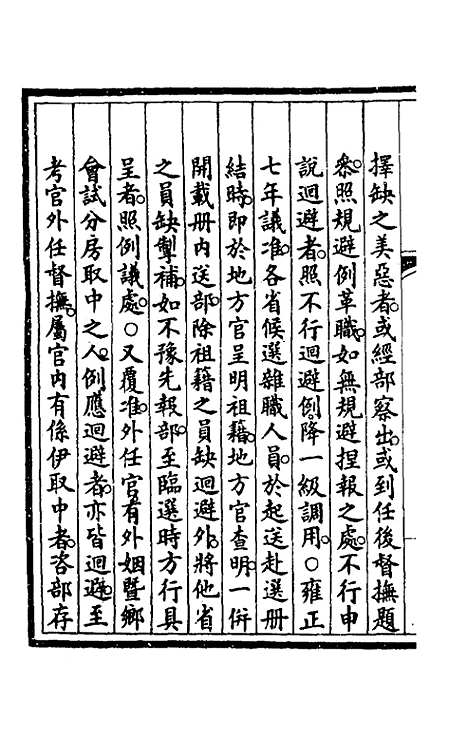 擇缺之美惡者。或經部察出。或到任後督撫題
叅。照規避例革職。如無規避捏報之處。不行申
說迴避者。照不行迴避例。降一級調用。○雍正
七年議准。各省候選雜職人員。於起送赴選冊
結時。即於地方官呈明祖籍。地方官查明。一併
開載冊內送部。除祖籍之員缺迴避外。將他省
之員缺掣補。如不豫先報部。至臨選時方行具
呈者。照例議處。○又覆准。外任官有外姻暨鄉
會試分房取中之人。例應迴避者。亦皆迴避。至
考官外任督撫。屬官內有係伊取中者。咨部存